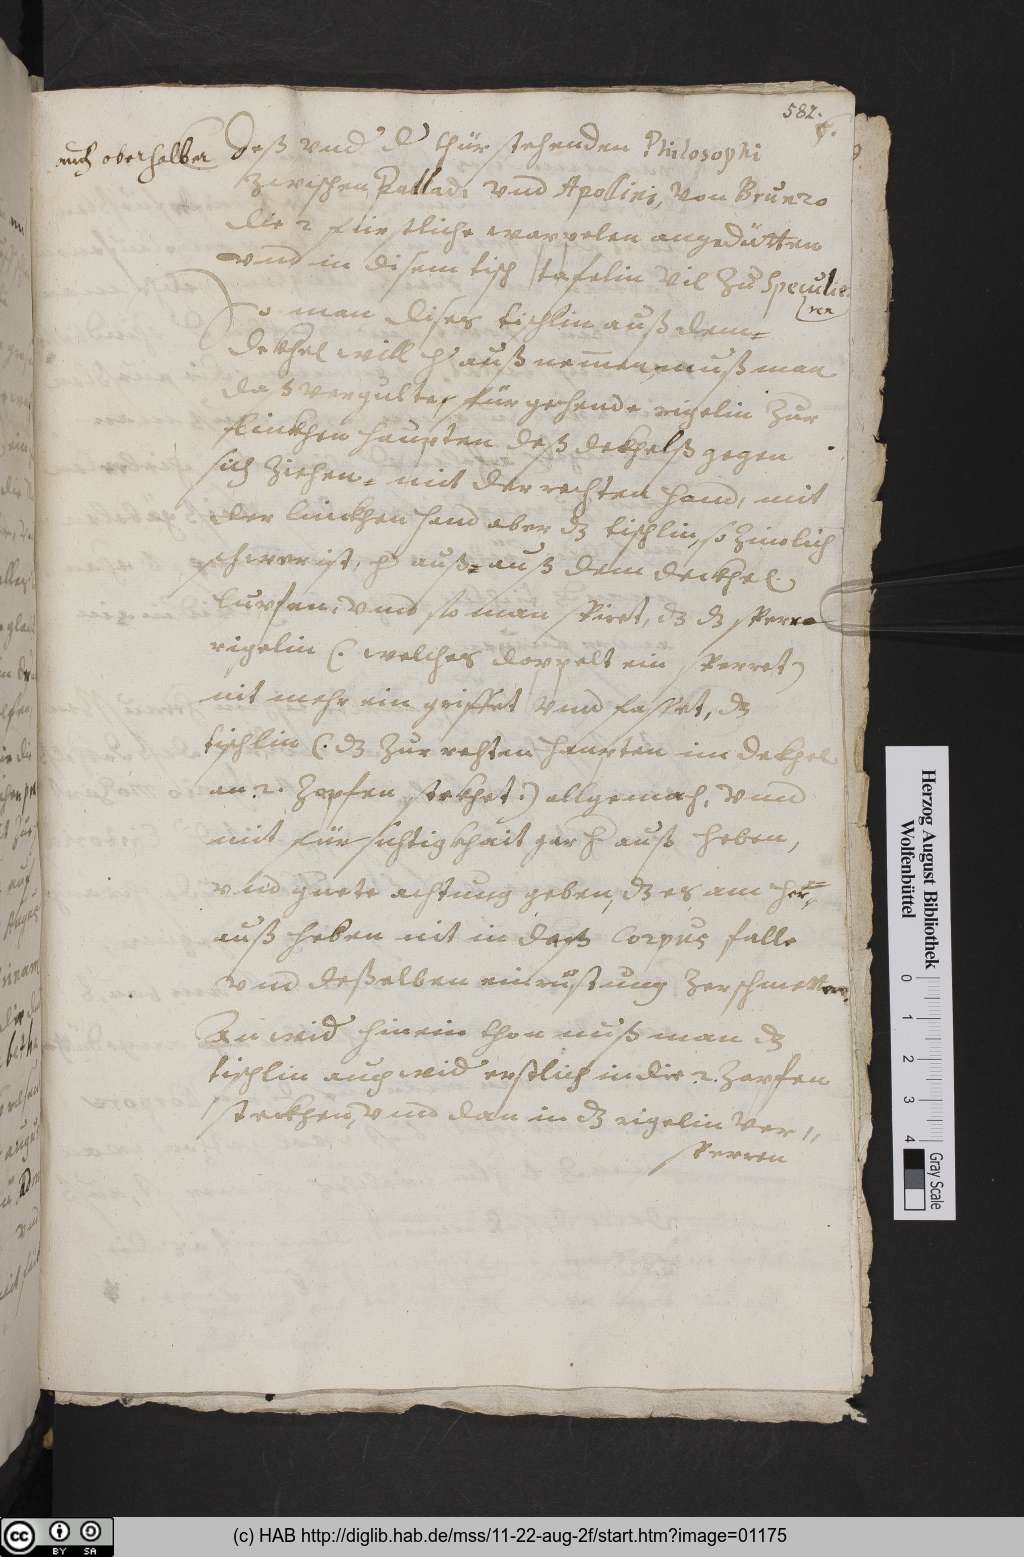 582.
6.
auch oberhalber
deß vnd d für stehenden Philosophi
Zwischen Palladi vnd Apolini, von Brunzo
die 2 fürstliche wappelen angedütten
vnd in disem tisch tafelin vil Zu Speculie:
ren
So man dises tischlin auß dem=
dekhel will h auß nemmen, muß man
daß vergulte, für gehende rigelin Zur
linkhen haupten deß dekhelß gegen
sich Ziehen, mit der rechten hand, mit
der linckhen hand aber dz tischlin, so Zimlich
schwer ist, h auß= auß dem deckhel
lupfen, vnd so man spiret, dz dz sperr
rigelin (. welches doppelt ein sperret)
nit mehr ein griffet vnd fasset, dz
tischlin (. dz Zur rechten haupten im dekhel
an 2. Zapfen stekhet:) allgemach, vnd
mit fürsichtigkhait gar h auß heben,
vnd guete achtung geben, dz es am her=
auß heben nit in daß Corpus falle
vnd deßelben einrüstung Zerschmettere.
Zu wid hinein thon muß man dz
tischlin auch wid erstlich in die 2. Zapfen
steckhen, vnd dan in dz rigelin ver //
sperren
Herzog August Bibliothek
Wolfenbüttel
0 1 2 3 4
Gray Scale
cc BY SA
(c) HAB http://diglib.hab.de/mss/11-22-aug-2f/start.htm?image=01175